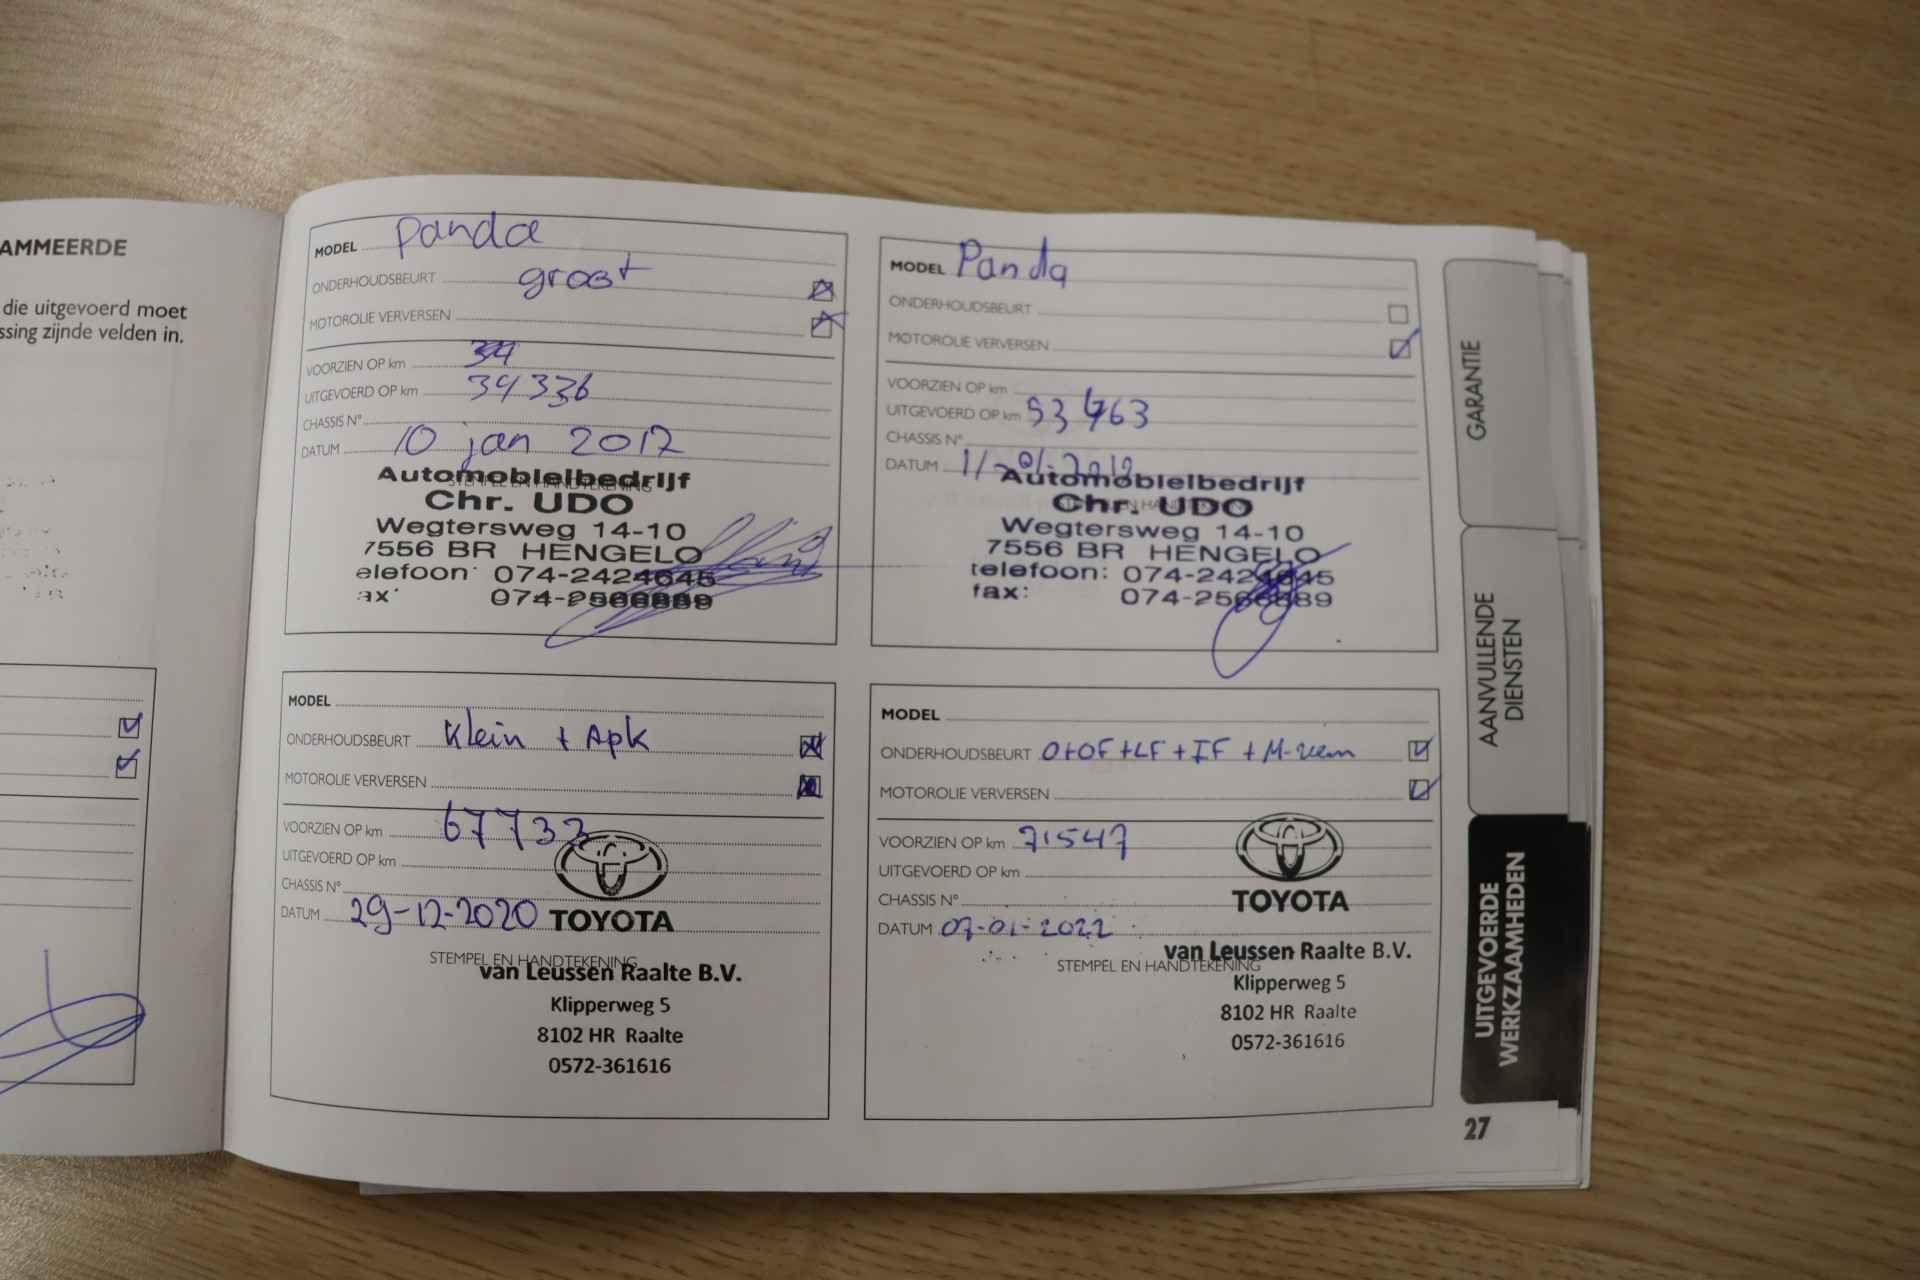 AMMEERDE
die uitgevoerd moet
ssing zijnde velden in.
MODEL Panda
ONDERHOUDSBEURT groot
MOTOROLIE VERVERSEN
VOORZIEN OP km
UITGEVOERD OP km 34336
CHASSIS N°
DATUM 10 jan 2017
STEMPEL EN HANDTEKENING
Automobielbedrijf
Chr. UDO
Wegtersweg 14-10
7556 BR HENGELO
elefoon: 074-2424645
ax: 074-2566889
MODEL Panda
ONDERHOUDSBEURT
MOTOROLIE VERVERSEN
VOORZIEN OP km
UITGEVOERD OP km 53463
CHASSIS N°
DATUM
Automobielbedrijf
Chr. UDO
Wegtersweg 14-10
7556 BR HENGELO
telefoon: 074-2424645
fax: 074-2566889
MODEL
ONDERHOUDSBEURT Klein + Apk
MOTOROLIE VERVERSEN
VOORZIEN OP km 67733
UITGEVOERD OP km
CHASSIS N°
DATUM 29-12-2020
TOYOTA
STEMPEL EN HANDTEKENING
van Leussen Raalte B.V.
Klipperweg 5
8102 HR Raalte
0572-361616
MODEL
ONDERHOUDSBEURT O+OF+LF+IF+M-rem
MOTOROLIE VERVERSEN
VOORZIEN OP km 71547
UITGEVOERD OP km
CHASSIS N°
DATUM 07-01-2022
TOYOTA
STEMPEL EN HANDTEKENING
van Leussen Raalte B.V.
Klipperweg 5
8102 HR Raalte
0572-361616
GARANTIE
AANVULLENDE
DIENSTEN
UITGEVOERDE
WERKZAAMHEDEN
27